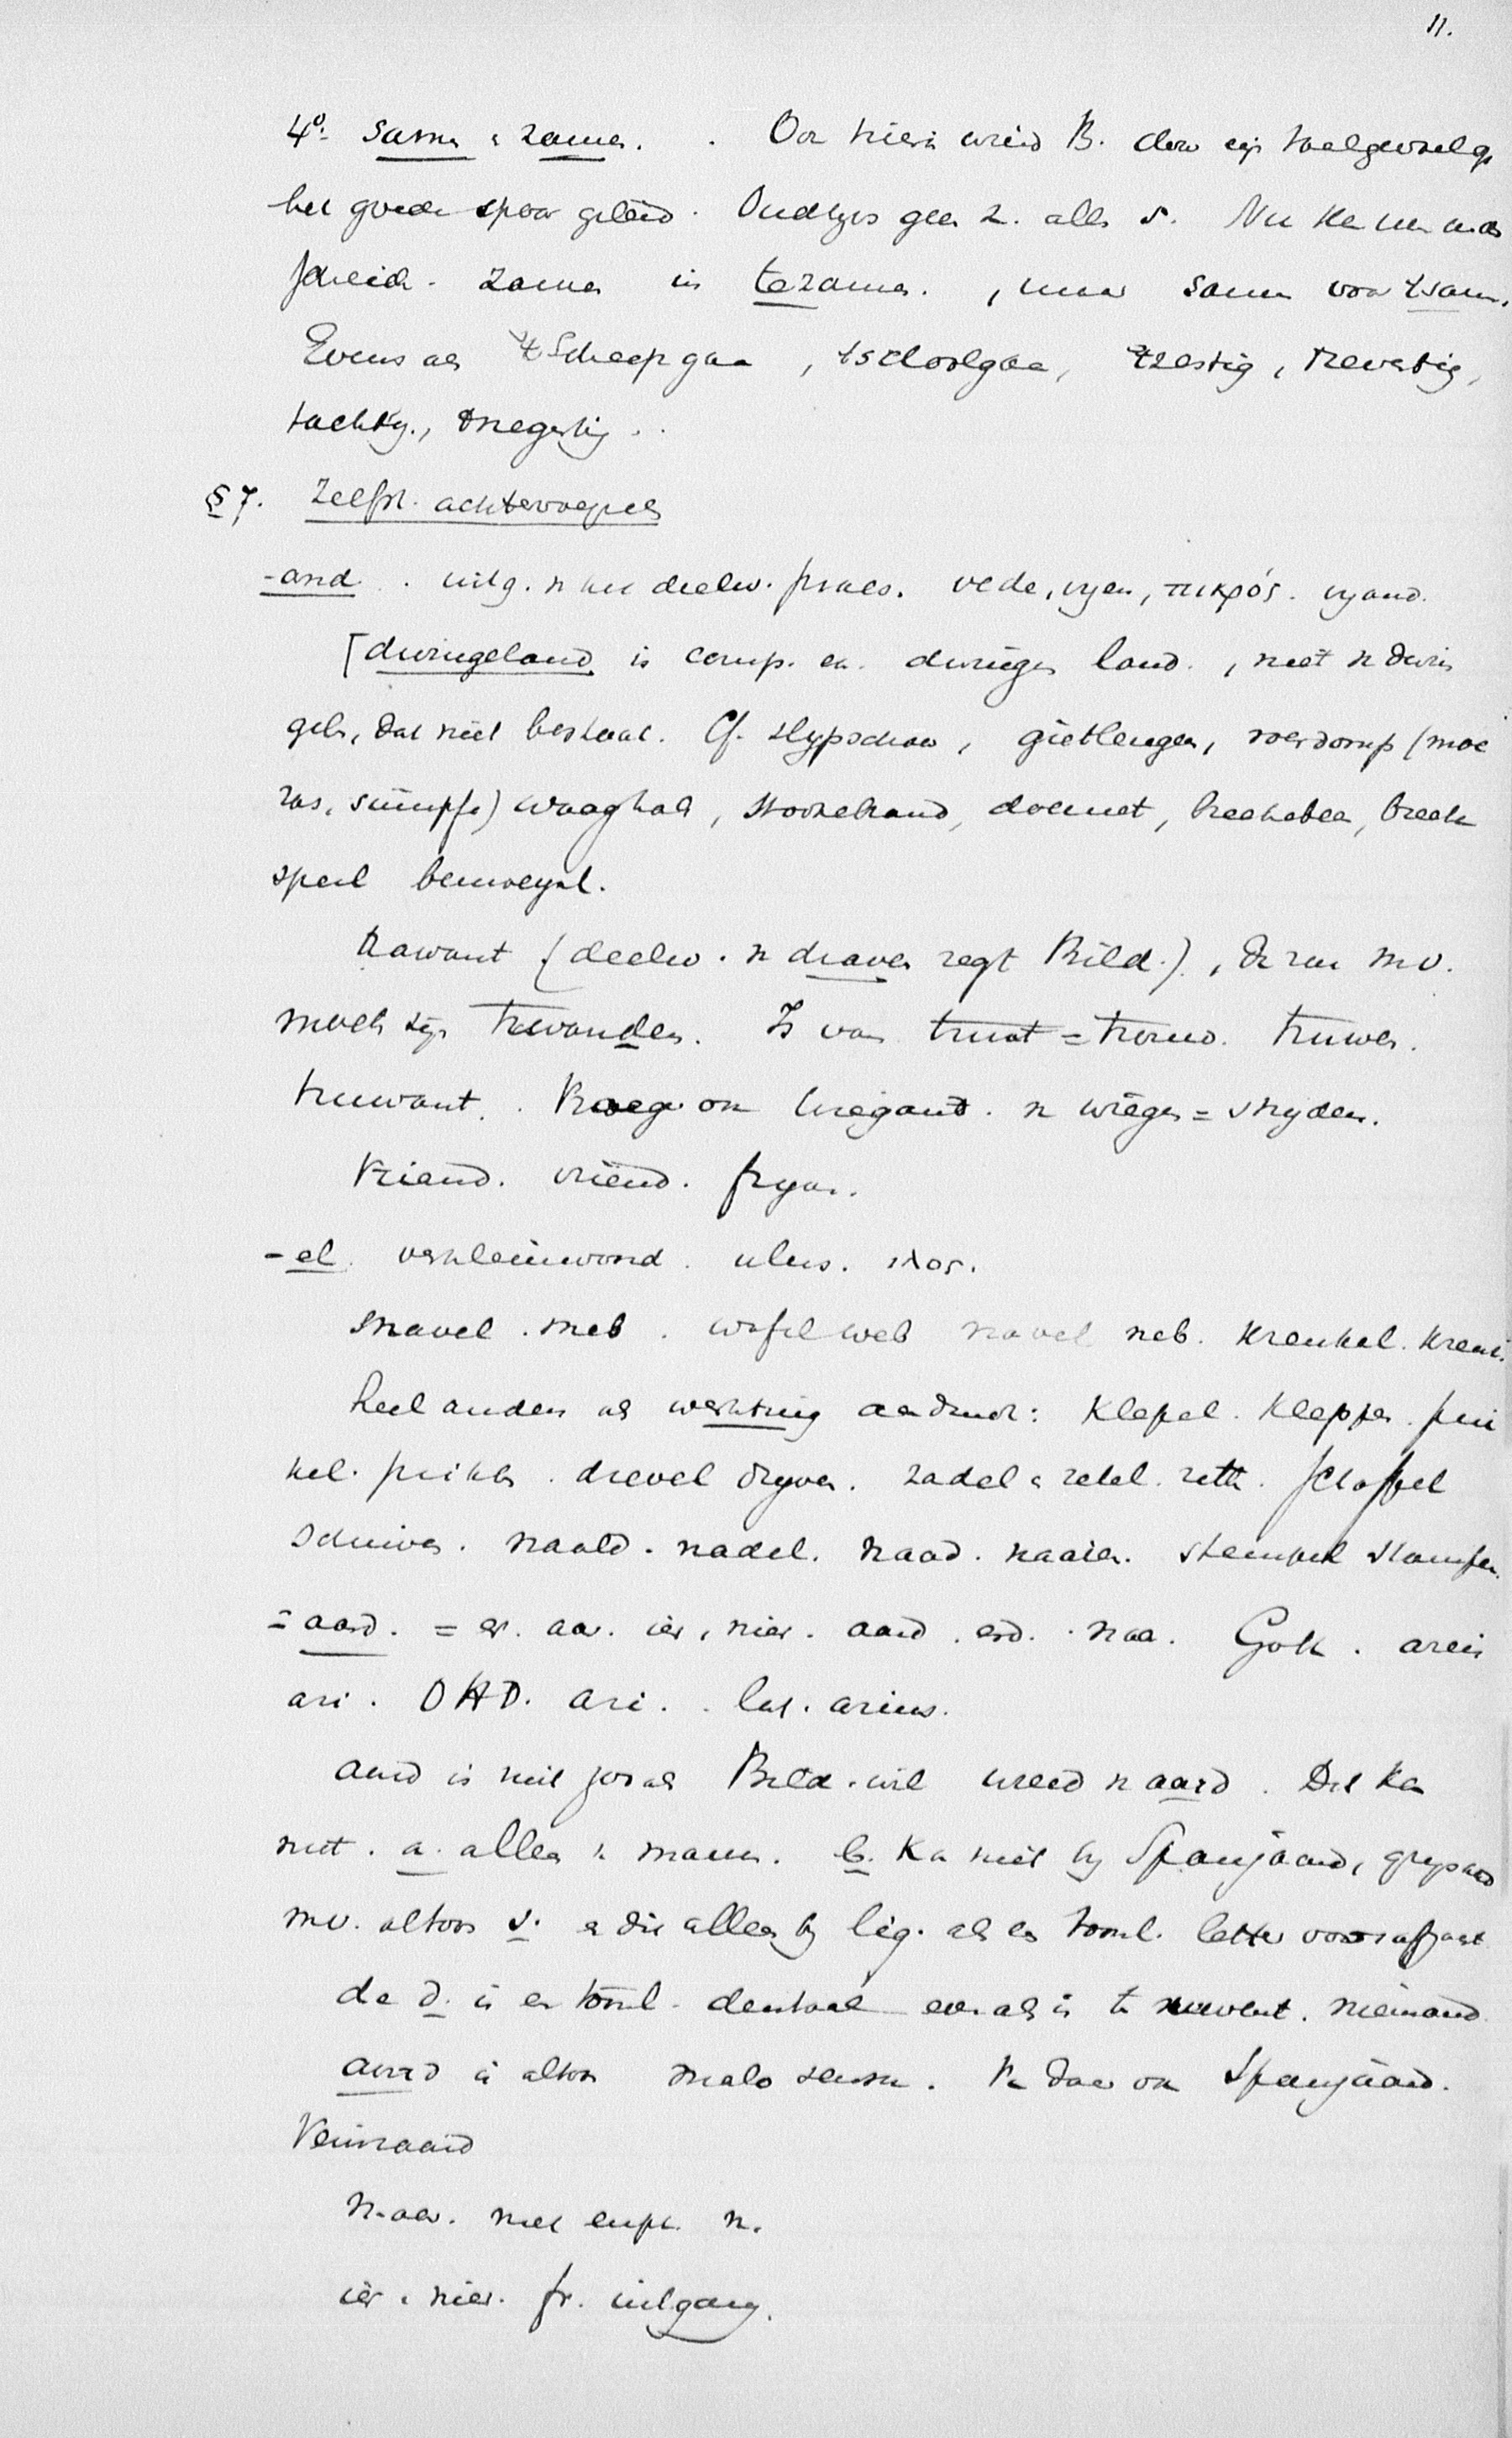 11.
4º. samen & zamen. . Ook hierin wierd B. door zijn taalgevoel op
het goede spoor geleid. Oudtyds geen z. alles s. Nu ken men onder
scheid. zamen in tezamen. , maar samen voor tsamen.
Evens als tScheepgaan, tschoolgaan, tzestig, tzeventig,
tachtig., tnegentig . .
§ 7. Zelfst. achtervoegsels
-and. . uitg. v. het deelw. praes. vede, vyen, πικρός. vyand.
[dwingeland is comp. en. dwingen land. , niet v. dwin
gelen, dat niet bestaat. Cf. slypschaar, gietlengen, roerdomp (moe
ras, sümpfe) waaghals, stookebrand, doeniet, brekebeen, breek
spel bemoeyal.
Trawant (deelw. v. draven zegt Bild.). , Dr zou mv.
moeten zijn trawanden. Is van truat = trouw. truwen.
truwant. . Vroeger ook wiegand. v. wiegen = stryden.
Vriand. vriend. fryan.
-el. verkleinwoord. ulus. ιλος.
snavel . sneb . wafel web navel neb. krenkel. krenk.
Heel anders als werktuig aanduid: Klepel. Kleppen. prik
kel. prikken . drevel dryven. zadel & zetel. zetten. schoffel
schuiven. naald. nadel. naad. naaien. stempel stampen.
-aard. = er. aar. ier, nier. aard . erd. . naar. Goth. areis
ari. OHD. ari. . lat. arius.
aard is niet zoals Bild. wil woord v. aard . Dit kan
niet. a. alleen v. mann. b. Kan niet by Spanjaard, grysaard
mv. altoos s. en die alleen by lig. als en toonl. letter voorafgaat
de d. is en toonl. dentaal evenals in niemand.
aard is altoos malo sensu. Van daar ook Spanjaard.
Veinzaard
n-aar. met euph. n.
ier. nier. fr. uitgang.